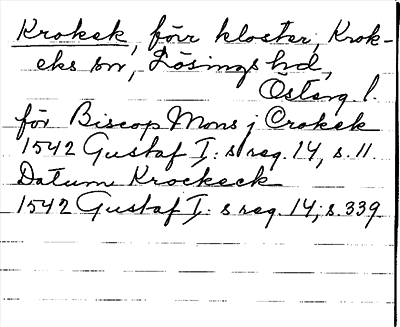 Krokek, förr kloster, Krok-
eks sn, Lösings hd,
Österg. l.
för Biscop Mons j Crokek
1542 Gustaf I: s reg. 14, s. 11.
Datum Krockeck
1542 Gustaf I: s reg. 14, s. 339